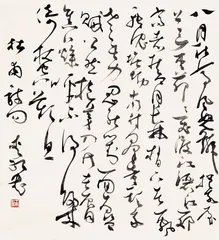 八月秋高风怒号卷我屋
上三重茅茅飞渡江洒江郊
高者挂罥长林梢下者飘
转沉塘坳南村群童欺我
老无力忍能对面为盗
贼公然抱茅入竹去唇
焦口燥呼不得归来
倚杖自叹息
杜甫诗句